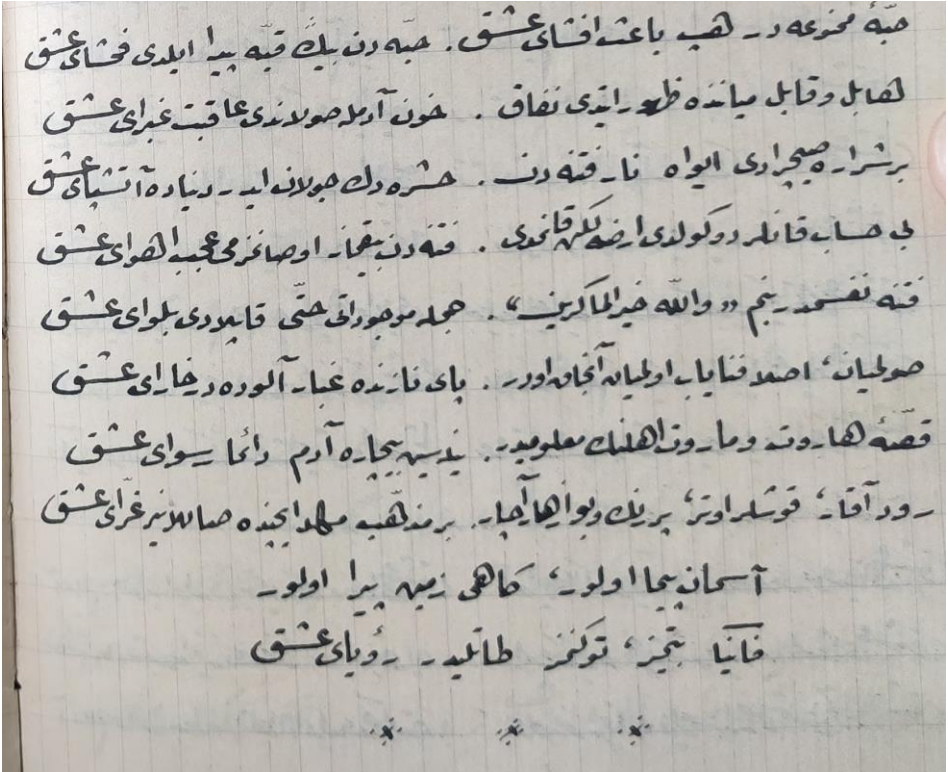 حبّهٔ ممنوعه در هپ باعث افشای عشق . حبّه دن بیڭ قبّه پیدا ایلدی فحشای عشق
هابل و قابل میاننده ظهور ایتدی نفاق . خون آدمله صولاندی عاقبت غبرای عشق
بر شراره صیچرادی ایواه نار فتنه دن . حشره دك جولان ایدر دنیاده آتشپای عشق
بی حساب قانلر دوکولدی ارضه لکن قانمدی . فتنه دن بیقماز اوصانمزمی عجب اهوای عشق
فتنه نفسمدر بنم «والله خیر الماکرین» . جمله موجوداتی حتّی قاپلادی بلوای عشق
صولمیان، اصلا فنایاب اولمیان آنجاق اودر . پای نازنده غبار آلوده در خارای عشق
قصّهٔ هاروت و ماروت اهلنك معلومیدر . نه دیسین بیچاره آدم دائما رسوای عشق
رود آقار، قوشلر اوتر، بر رنك و بو ازهار آچار . بر مذهّب مهد ایچنده صاللانیر غرّای عشق
آسمان پیما اولور، کاهی زمین پیرا اولور
فانیا بتمز، توکنمز طاتلیدر رؤیای عشق